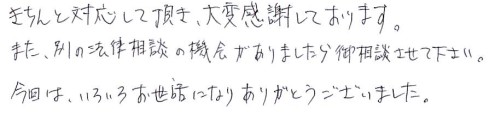 きちんと対応して頂き、大変感謝しております。
また、別の法律相談の機会がありましたら御相談させて下さい。
今回は、いろいろお世話になりありがとうございました。